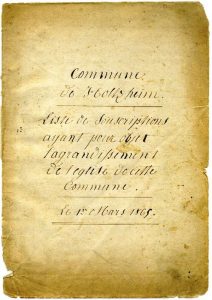 Commune
de Holtzheim.
Liste de Souscriptions
ayant pour objet
l'agrandissement
de l'église de cette
Commune.
Le 1er Mars 1865.